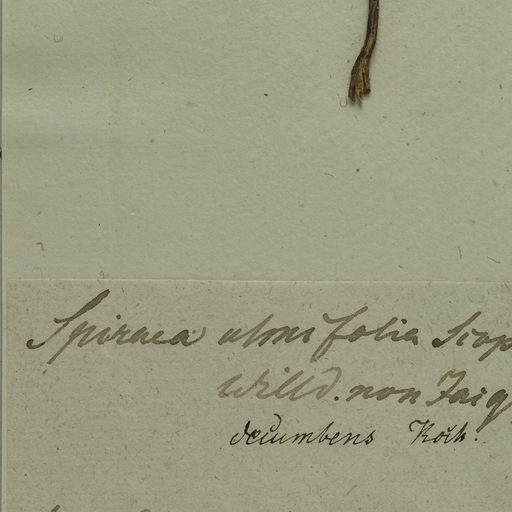 Spiraea ulmifolia Scop
Willd. non Jacq
decumbens Koch.